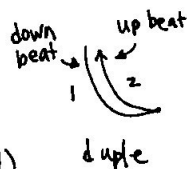 down
beat
up beat
1
2
duple